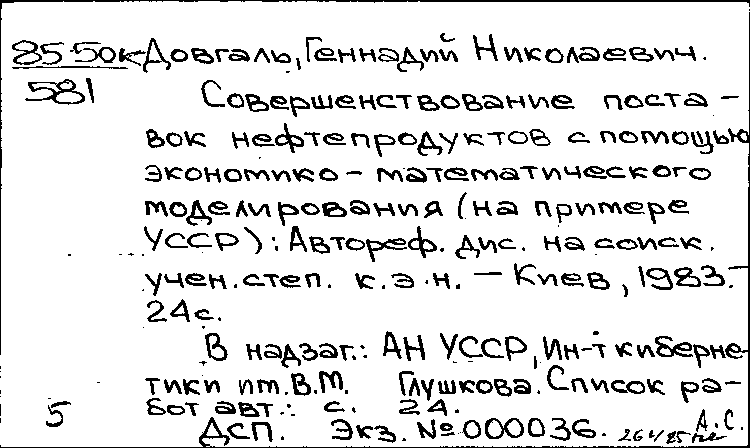 85-50к Довгаль, Геннадий Николаевич.
581 Совершенствование поста-
вок нефтепродуктов с помощью
экономико-математического
моделирования (на примере
УССР): Автореф. дис. на соиск.
учен. степ. к.э.н. - Киев, 1983.-
24с.
В надзаг.: АН УССР, Ин-т киберне-
тики им. В.М. Глушкова. Список ра-
5 бот авт.: с. 24.
ДСП. Экз. № 000036. А.С.